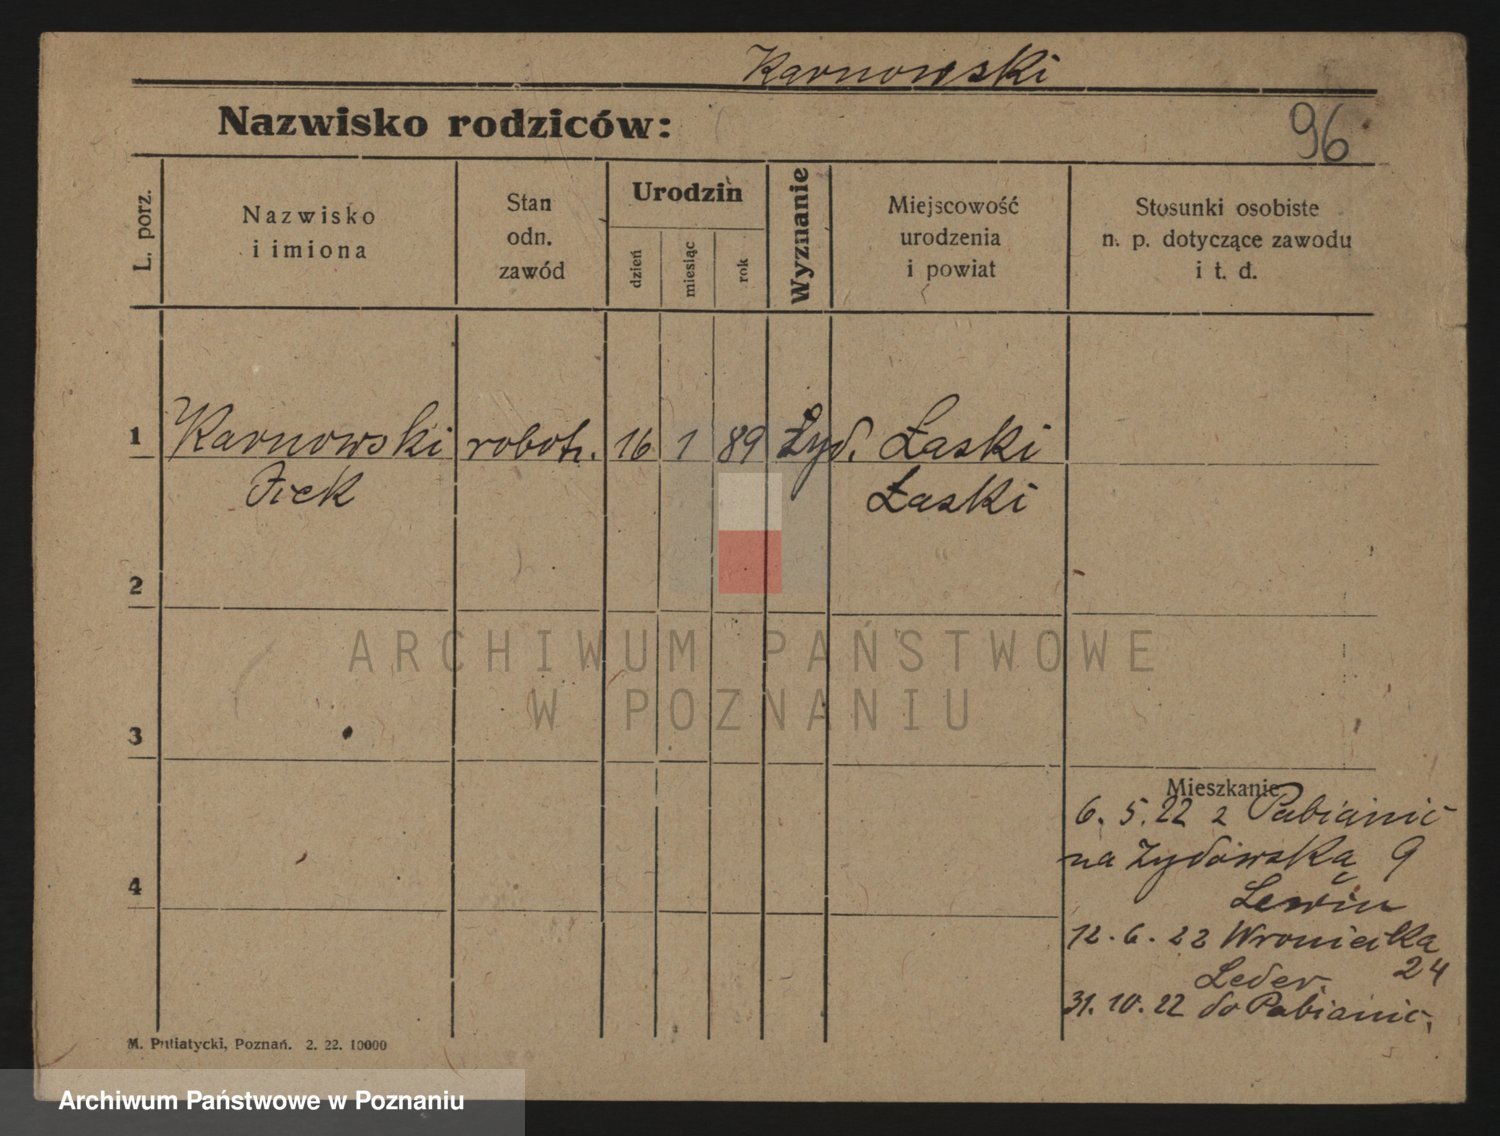 Karnowski
Nazwisko rodziców:
96
L. porz.
Nazwisko
i imiona
Stan
odn.
zawód
Urodzin
dzień
miesiąc
rok
Wyznanie
Miejscowość
urodzenia
i powiat
Stosunki osobiste
n. p. dotyczące zawodu
i t. d.
1 Karnowski robotn. 16 1 89 Żyd. Łaski
Icek Łaski
2
ARCHIWUM PAŃSTWOWE
W POZNANIU
3
Mieszkanie
6. 5. 22 z Pabianic
na Żydowską 9
Lewin
4
12. 6. 22 Wroniecka
24
Leder.
31. 10. 22 do Pabianic.
M. Putiatycki, Poznań. 2. 22. 10000
Archiwum Państwowe w Poznaniu